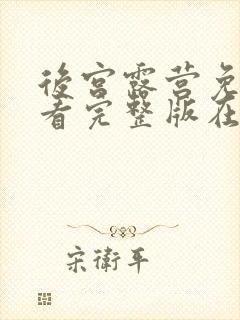 後宫露营免
看完整版在
宋衛平